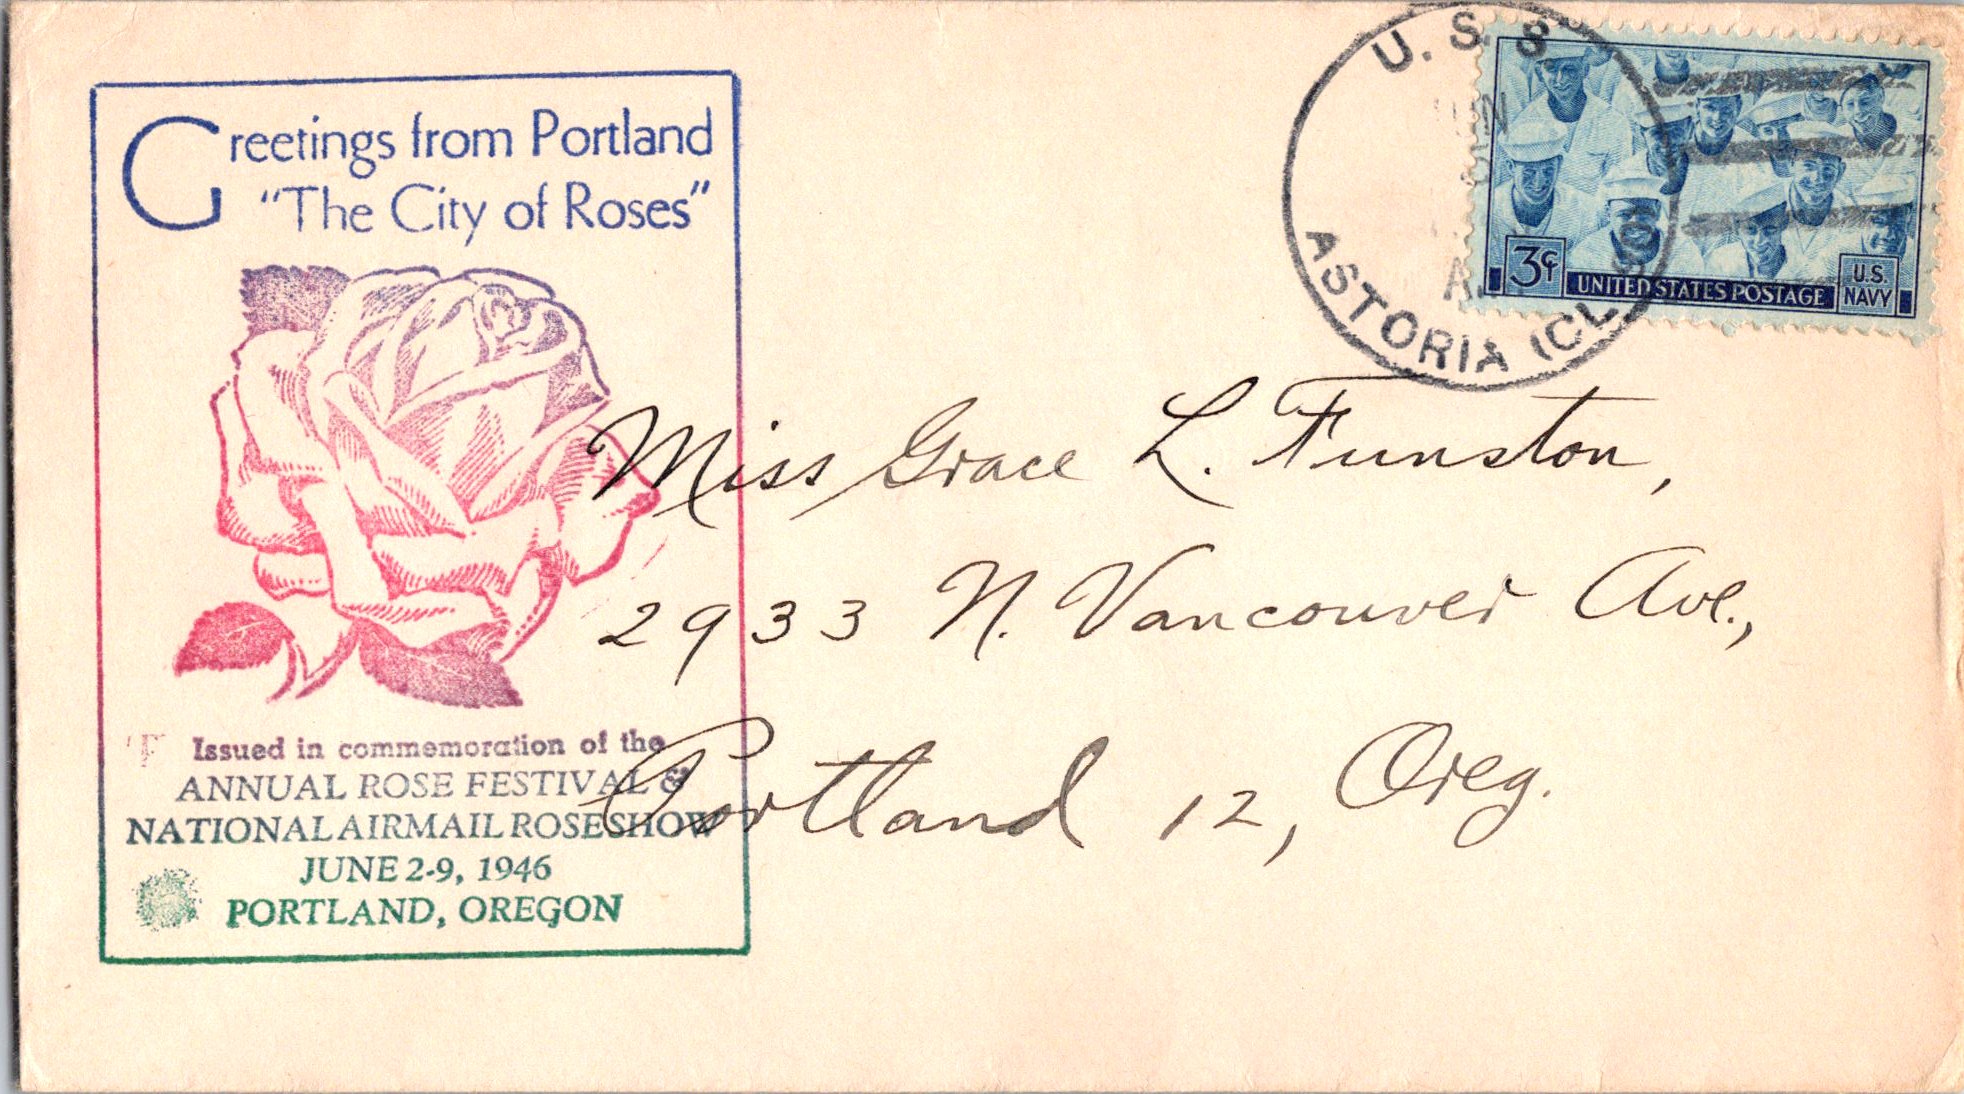 Greetings from Portland
"The City of Roses"
Issued in commemoration of the
ANNUAL ROSE FESTIVAL &
NATIONAL AIRMAIL ROSESHOW
JUNE 2-9, 1946
PORTLAND, OREGON
U. S. S.
ASTORIA (CL 90)
3¢
UNITED STATES POSTAGE
U.S.
NAVY
Miss Grace L. Funston,
2933 N. Vancouver Ave.,
Portland 12, Oreg.